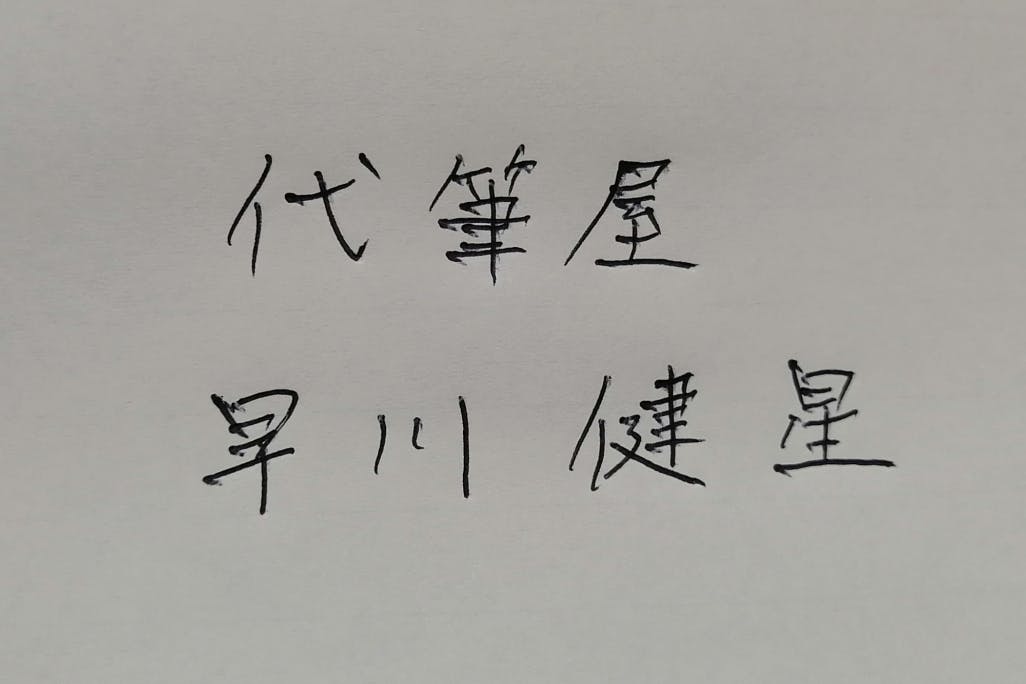 代筆屋
早川健星